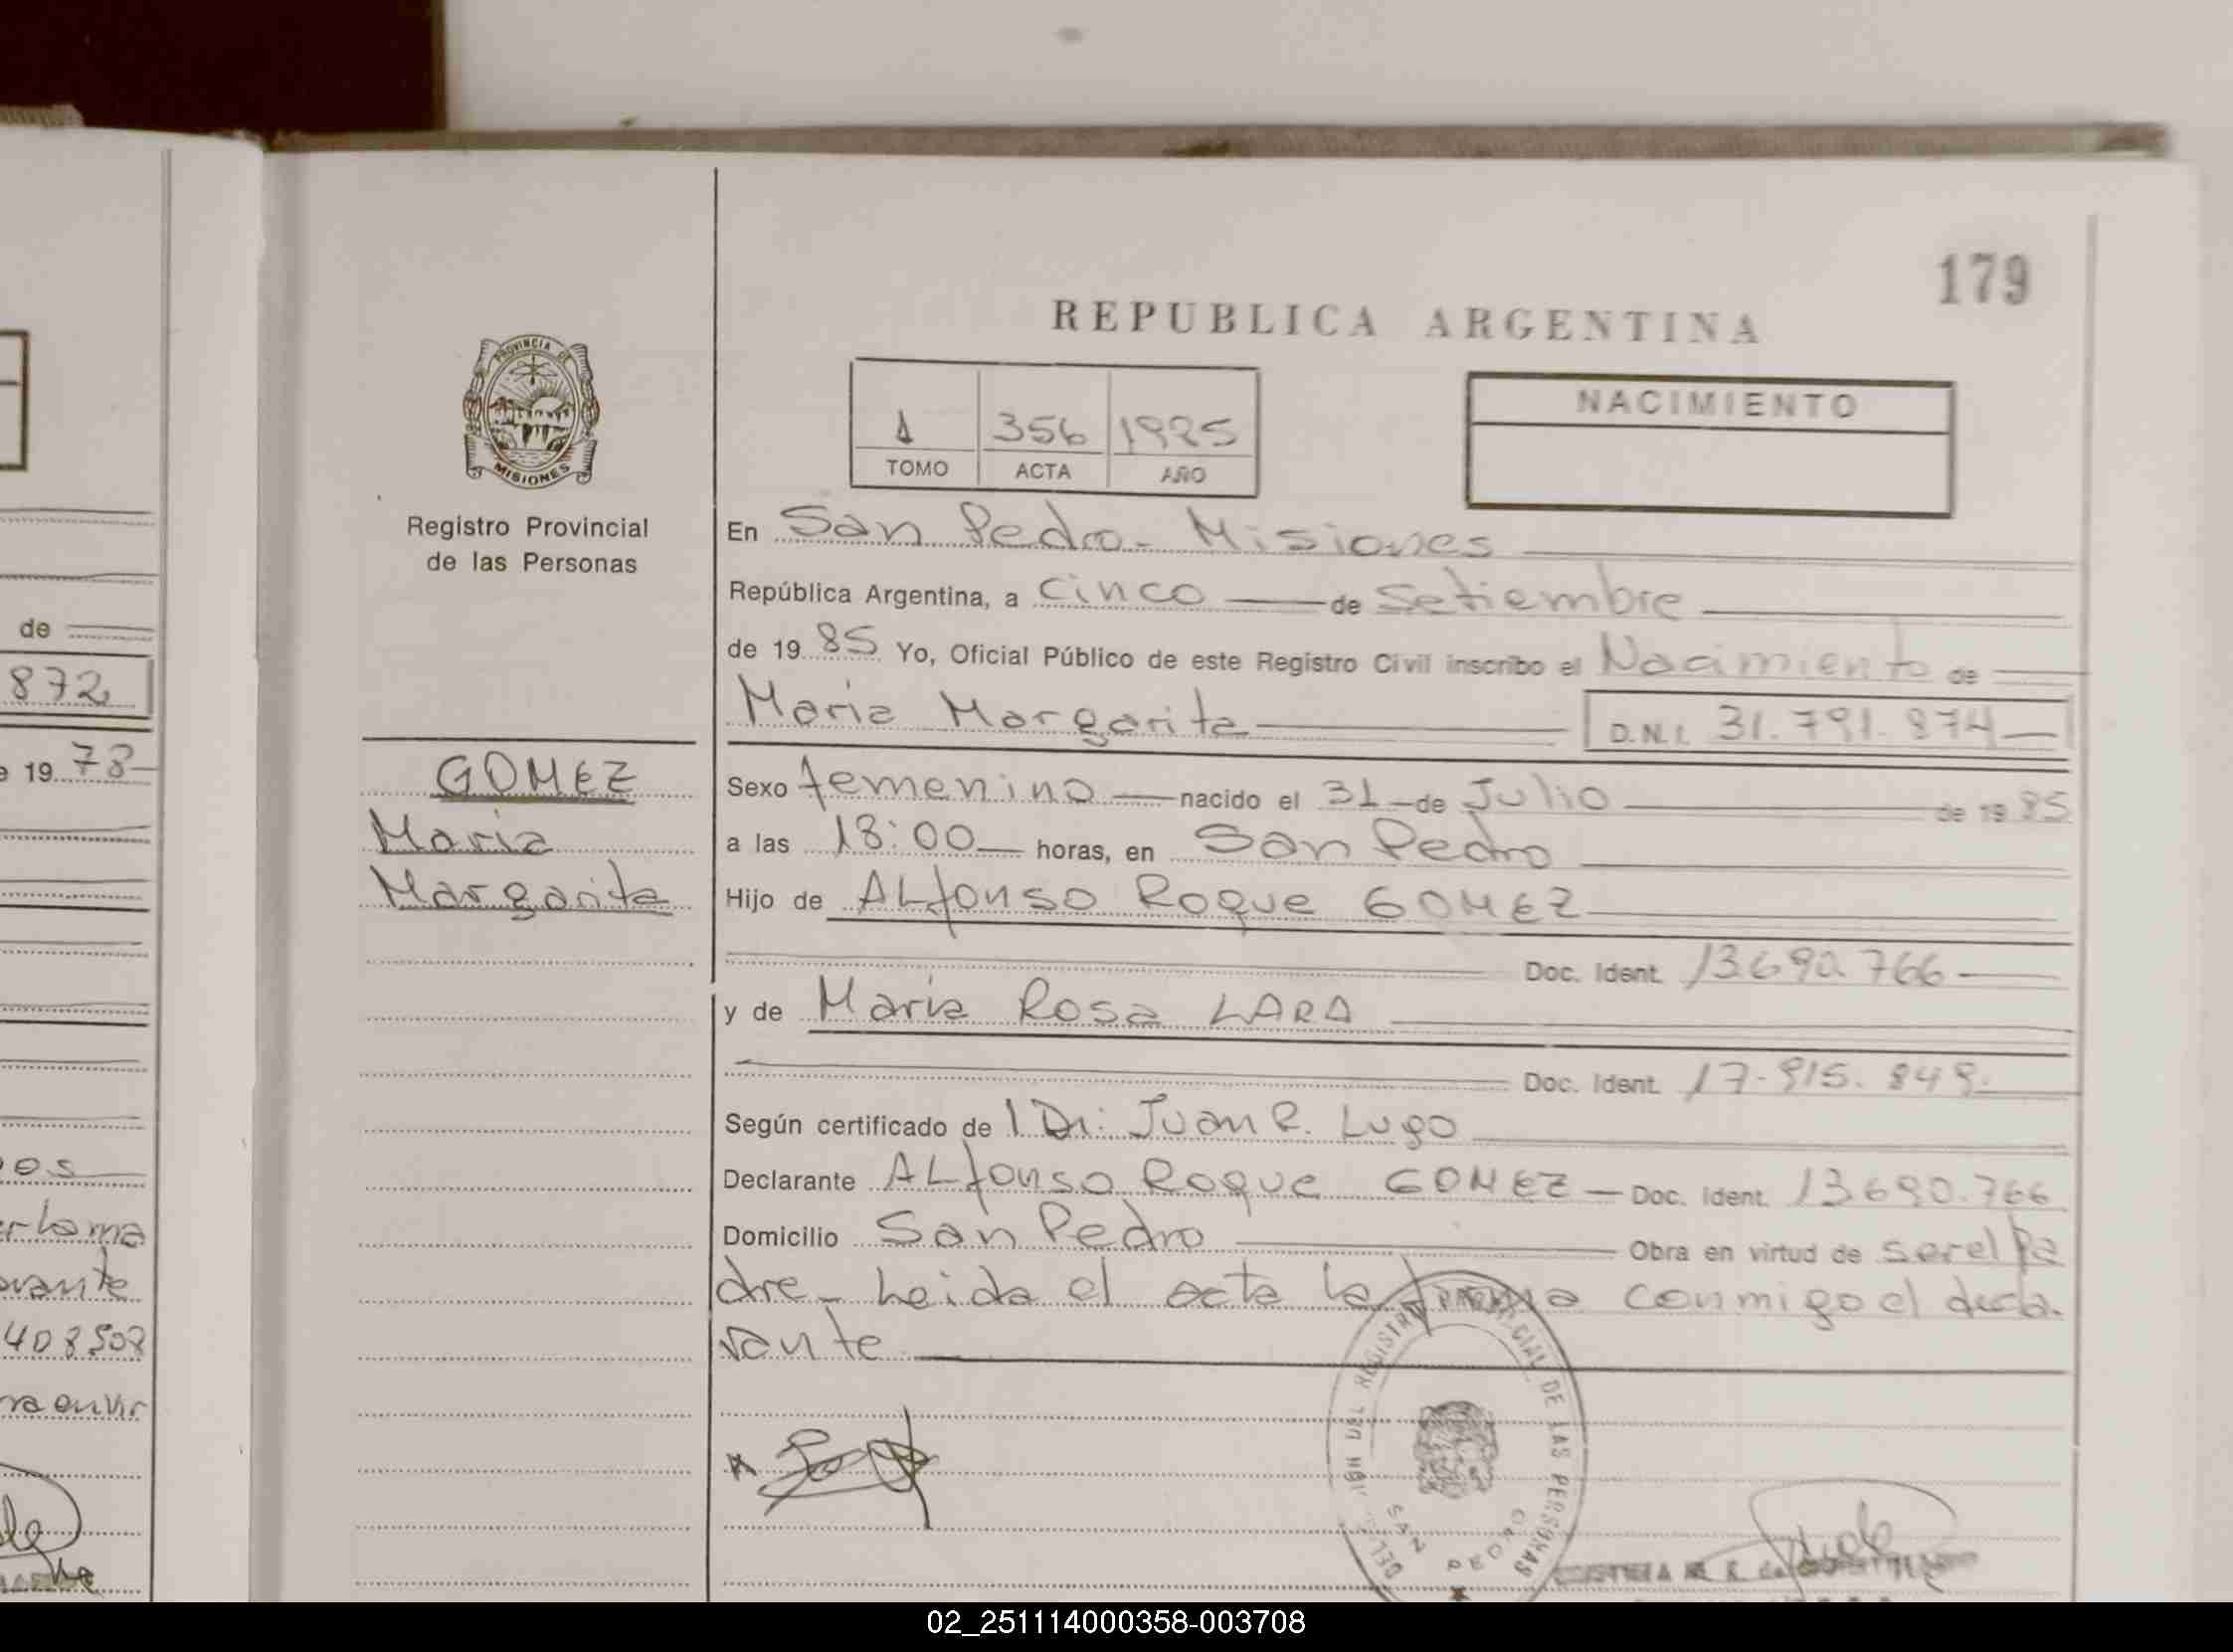 179
REPUBLICA ARGENTINA
PROVINCIA DE
MISIONES
Registro Provincial
de las Personas
1 356 1985
TOMO ACTA AÑO
NACIMIENTO
En San Pedro - Misiones
República Argentina, a cinco de Setiembre
de 1985 Yo, Oficial Público de este Registro Civil inscribo el Nacimiento de
Maria Margarita D.N.I. 31.791.874
GOMEZ
Maria
Margarita
Sexo femenino nacido el 31 de Julio de 1985
a las 18:00 horas, en San Pedro
Hijo de ALfonso Roque GOMEZ
Doc. Ident. 13690.766
y de Maria Rosa LARA
Doc. Ident. 17.915.849.
Según certificado de l Dr: Juan R. Lugo
Declarante ALfonso Roque GOMEZ Doc. Ident. 13690.766
Domicilio San Pedro Obra en virtud de ser el Pa
dre - Leida el acta la firma conmigo el decla-
rante
DEL REGISTRO PROVINCIAL DE LAS PERSONAS
SAN PEDRO
de
872
e 19 78
os
rante
408508
02_251114000358-003708